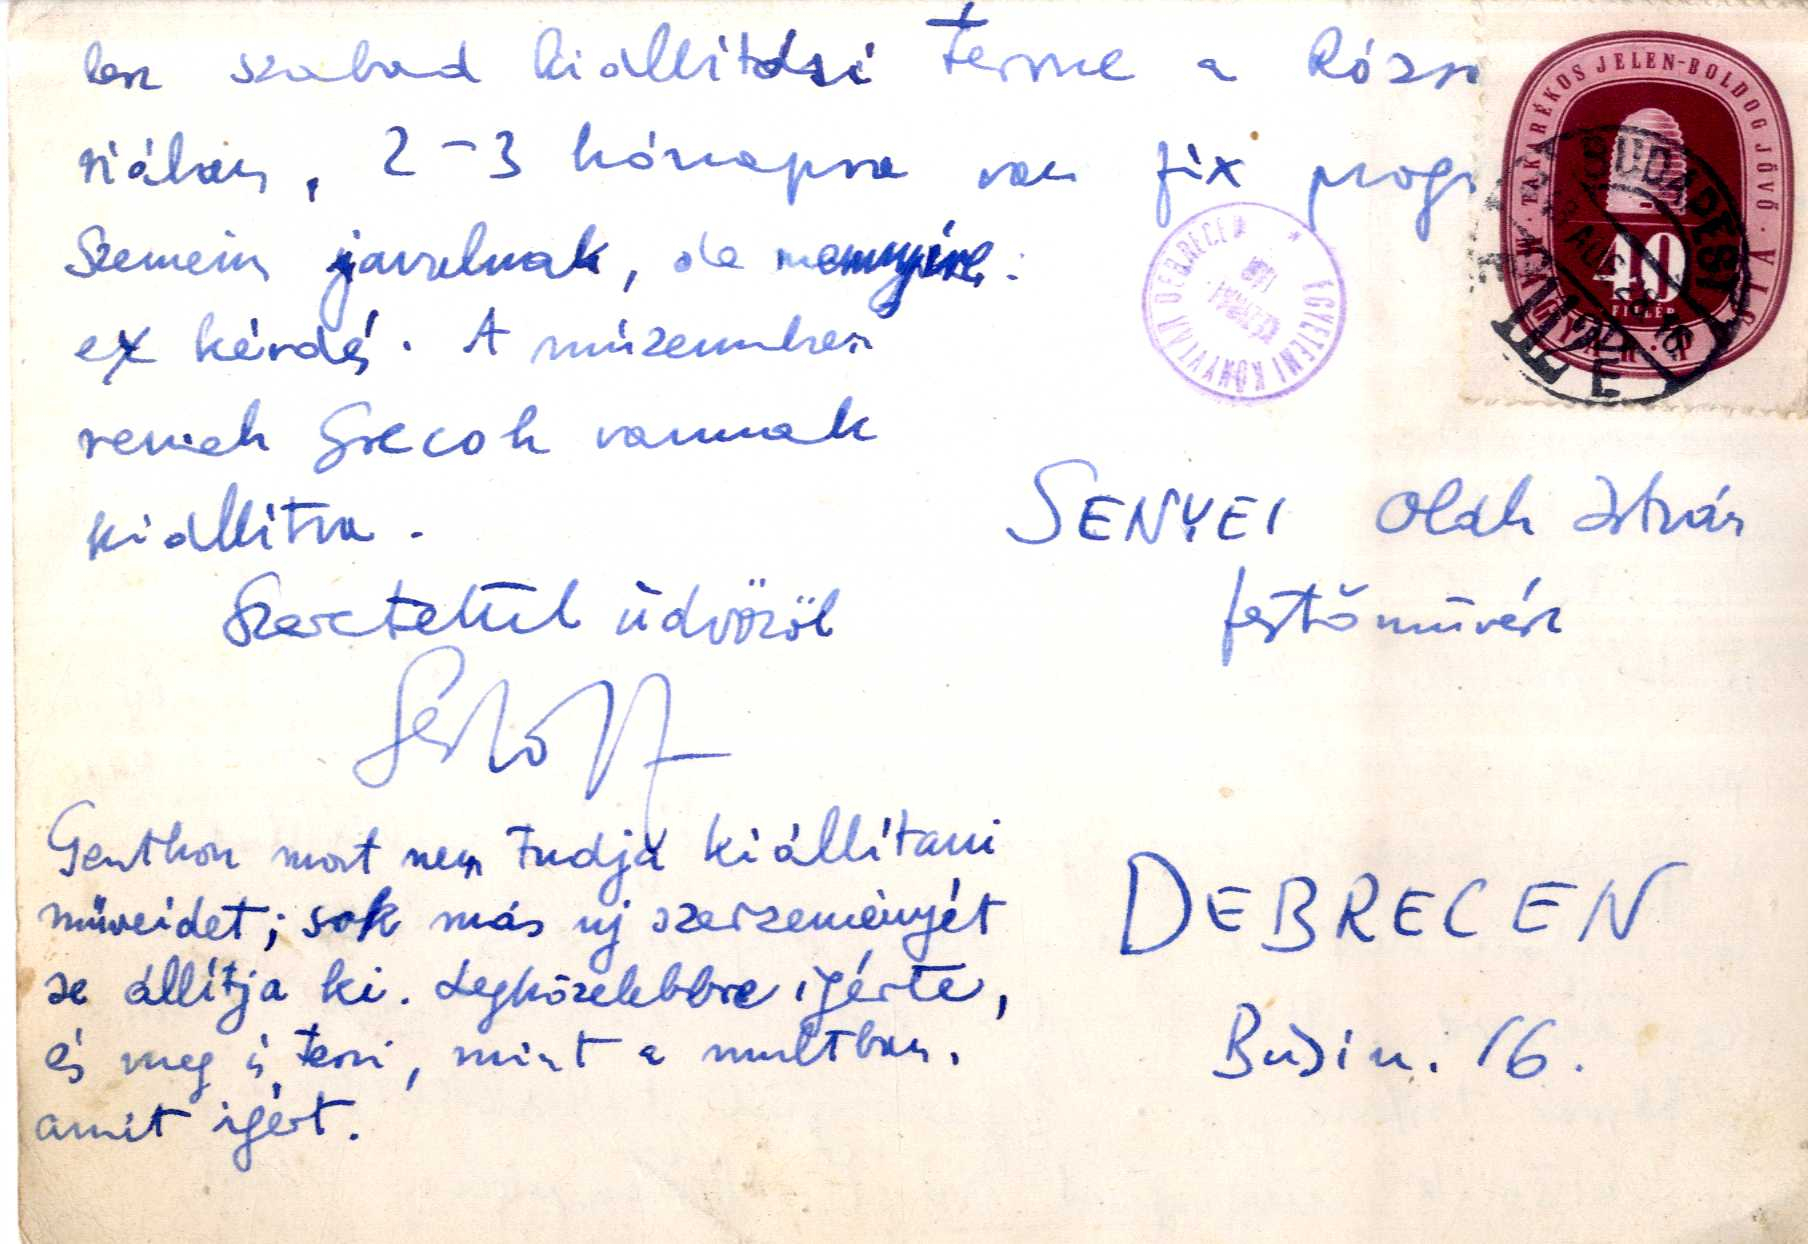 lesz szabad kiállítási terme a Rózsa
riában, 2-3 hónapra van fix progr
Szemeim javulnak, de mennyire:
ez kérdés. A múzeumban
remek Grecok vannak
kiállítva.
Szeretettel üdvözöl
Genthon most nem tudja kiállítani
műveidet; sok más uj szerzeményét
se állítja ki. Legközelebbre igérte,
és meg is teszi, mint a multban,
amit igért.
TAKARÉKOS JELEN-BOLDOG JÖVŐ
MAGYAR POSTA
40
FILLÉR
BUDAPEST
EGYETEMI KÖNYVTÁR DEBRECEN
SENYEI Oláh István
festőművész
DEBRECEN
16.